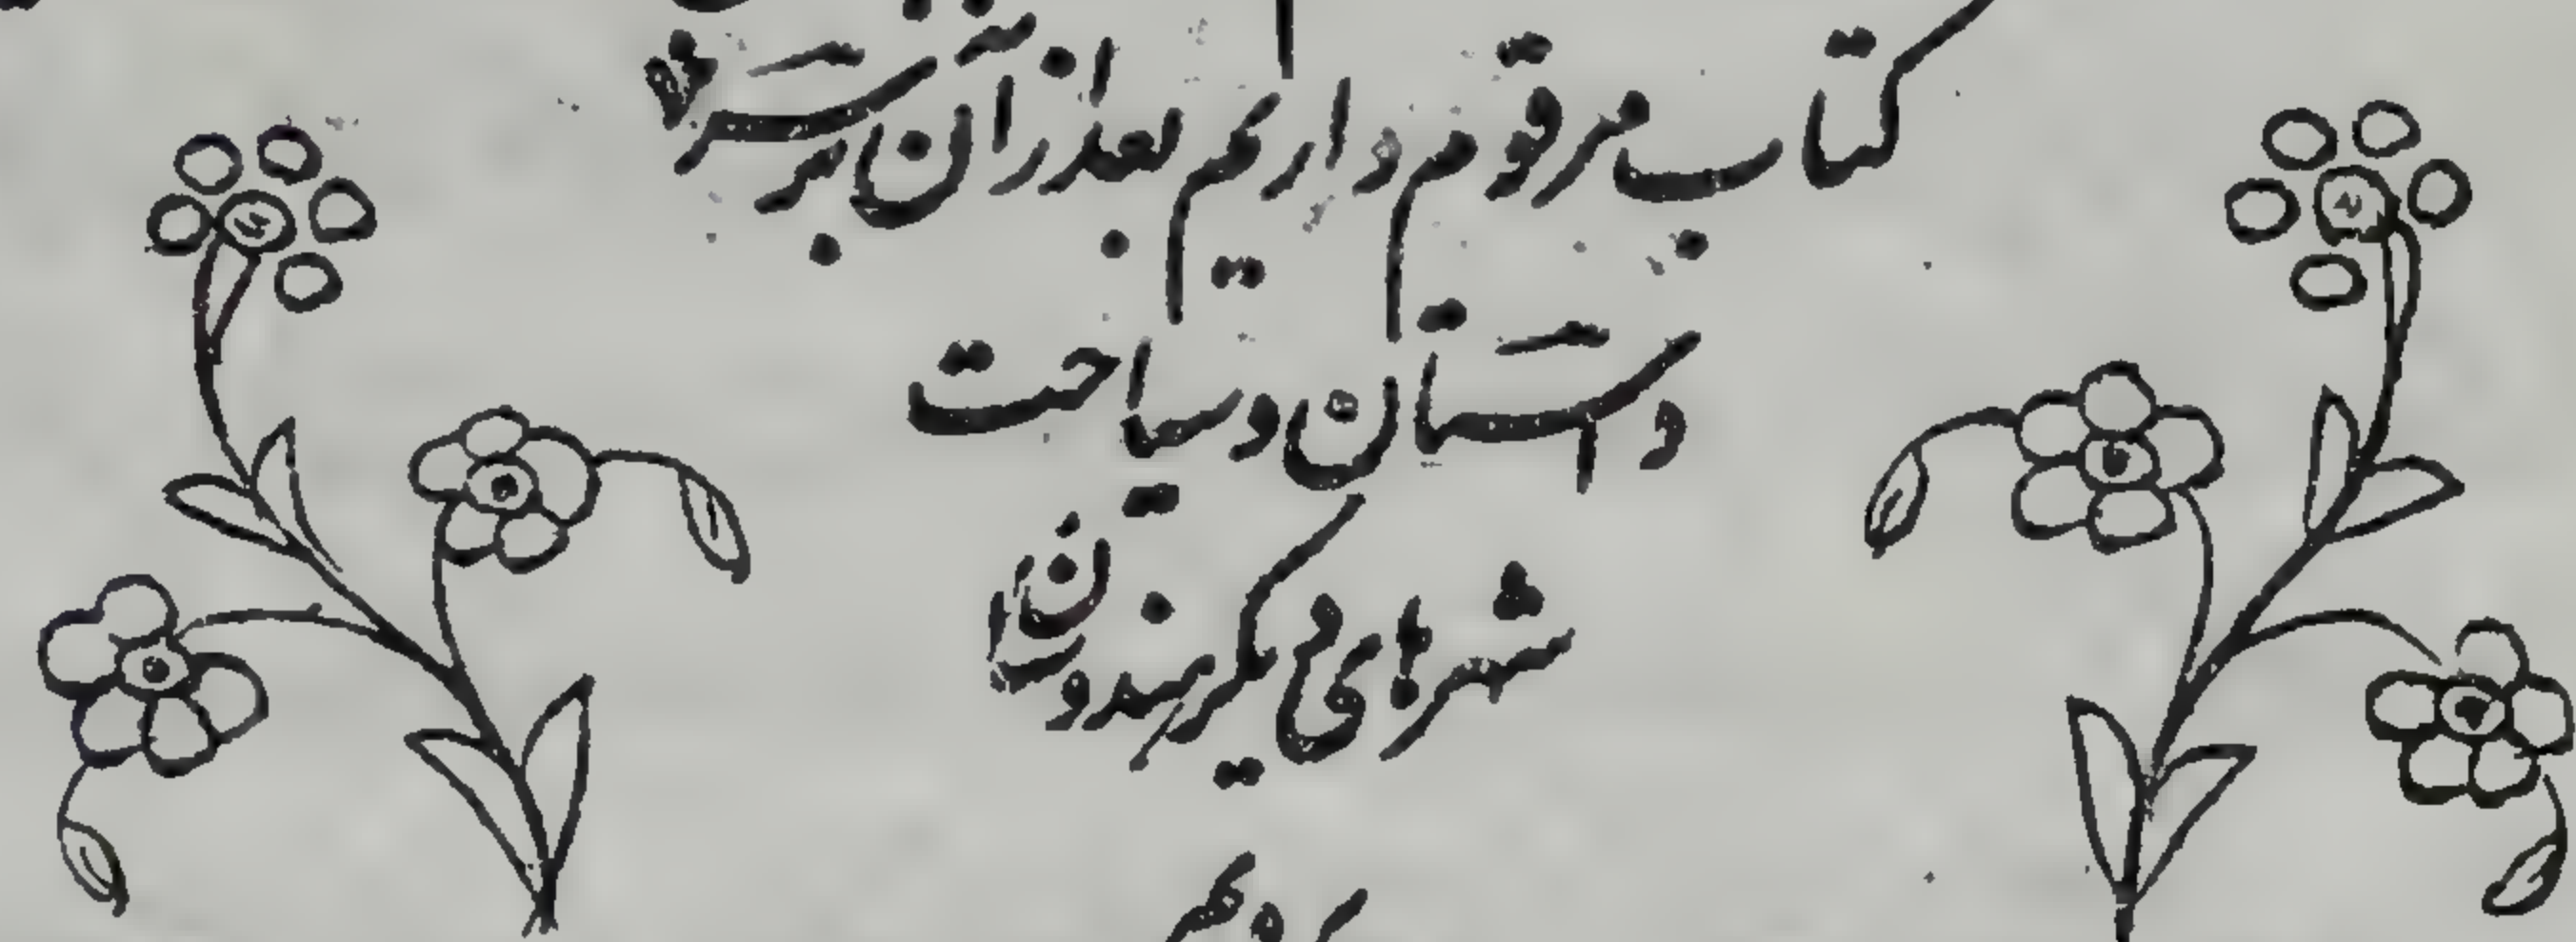 کتاب مرقوم داریم بعد ازان بر سر
داستان و سیاحت
شهرهای دیگر هندوستان
رویم